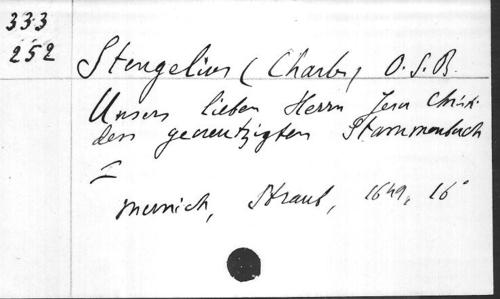 333
252
Stengelius (Charles) O.S.B.
Unsers lieben Herrn Jesu Christi
des gecreutzigten Stammenbuch
I
Munich, Straub, 1649, 16°